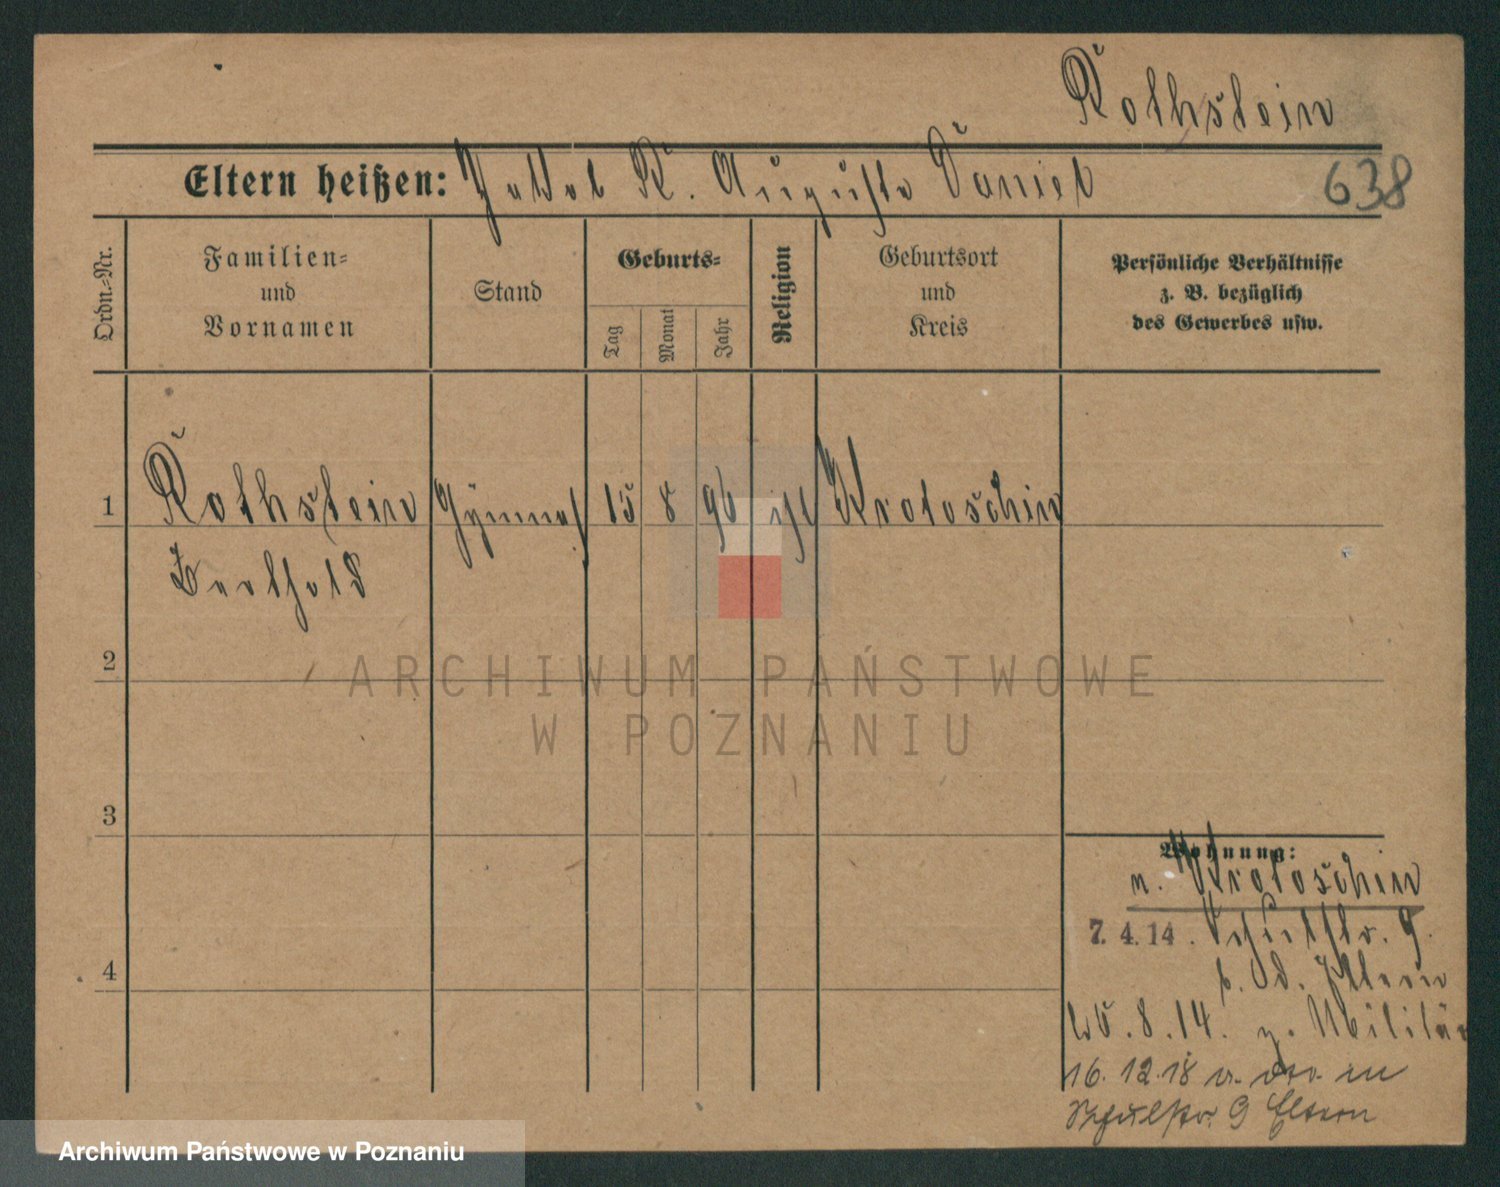 Rothstein
Eltern heißen: Jakob R. Auguste Daniel
638
Ordn.-Nr.
Familien-
und
Vornamen
Stand
Geburts-
Tag
Monat
Jahr
Religion
Geburtsort
und
Kreis
Persönliche Verhältnisse
z. B. bezüglich
des Gewerbes usw.
1
Rothstein Gymnas 15 8 96 isr Krotoschin
Berthold
2
3
4
Wohnung:
n. Krotoschin
7. 4. 14. Schulstr. 9.
b. d. Eltern
25. 8. 14. z. Militär
16. 12. 18 v. in
Schulstr. 9 Eltern
ARCHIWUM PAŃSTWOWE
W POZNANIU
Archiwum Państwowe w Poznaniu